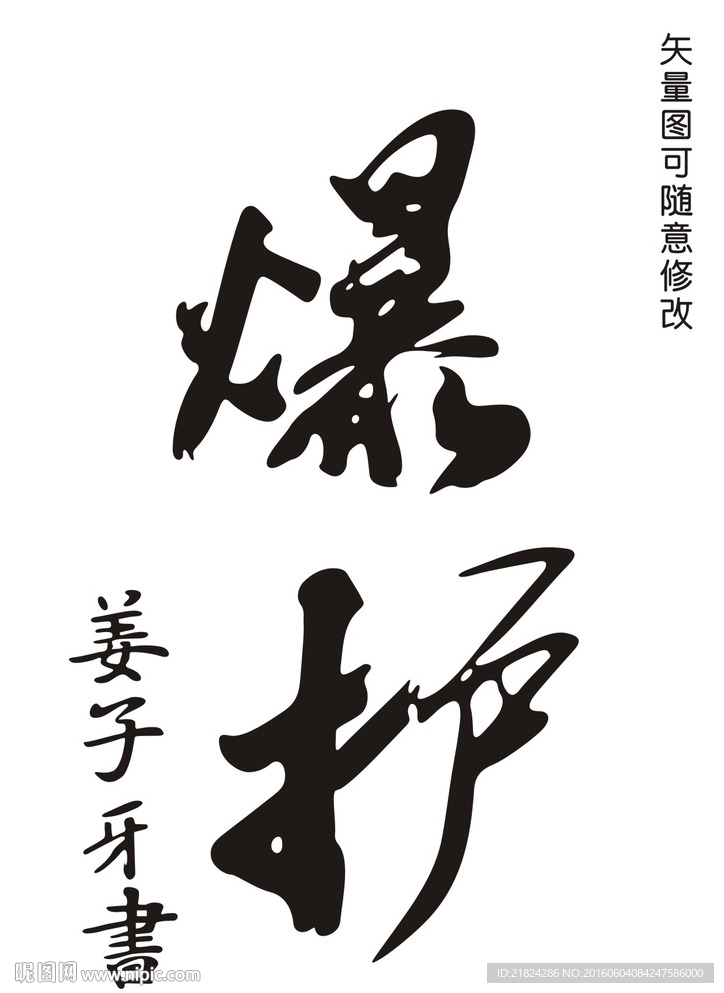 矢量图可随意修改
爆
护
姜子牙書
昵图网 www.nipic.com
ID:21824286 NO:20160604084247586000